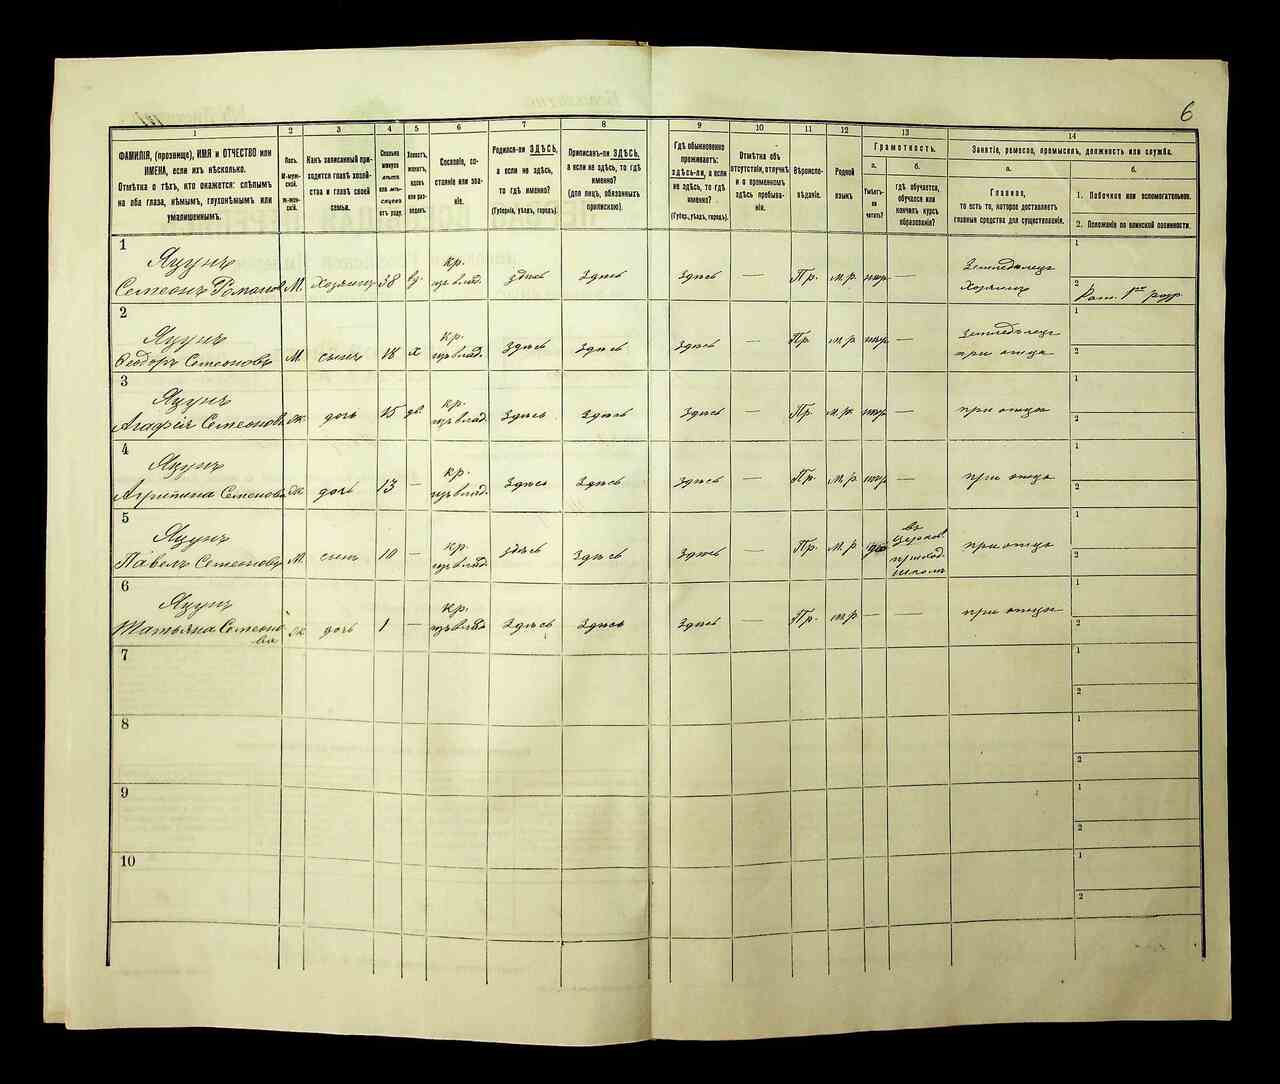 6
1
2
3
4
5
6
7
8
9
10
11
12
13
14
ФАМИЛІЯ, (прозвище), ИМЯ и ОТЧЕСТВО или
ИМЕНА, если ихъ нѣсколько.
Отмѣтка о тѣхъ, кто окажется: слѣпымъ
на оба глаза, нѣмымъ, глухонѣмымъ или
умалишеннымъ.
Полъ.
М-муж-
ской.
Ж-жен-
скій.
Какъ записанный при-
ходится главѣ хозяй-
ства и главѣ своей
семьи.
Сколько
минуло
лѣтъ
или мѣ-
сяцевъ
отъ роду.
Холостъ,
женатъ,
вдовъ
или раз-
веденъ.
Сословіе, со-
стояніе или зва-
ніе.
Родился-ли ЗДѢСЬ,
а если не здѣсь,
то гдѣ именно?
(Губернія, уѣздъ, городъ).
Приписанъ-ли ЗДѢСЬ,
а если не здѣсь, то гдѣ
именно?
(для лицъ, обязанныхъ
припискою).
Гдѣ обыкновенно
проживаетъ:
здѣсь-ли, а если
не здѣсь, то гдѣ
именно?
(Губер., уѣздъ, городъ).
Отмѣтка объ
отсутствіи, отлучкѣ
и о временномъ
здѣсь пребыва-
ніи.
Вѣроиспо-
вѣданіе.
Родной
языкъ.
Грамотность.
а.
Умѣетъ-
ли
читать?
б.
гдѣ обучается,
обучался или
кончилъ курсъ
образованія?
Занятіе, ремесло, промыселъ, должность или служба.
а.
Главное,
то есть то, которое доставляетъ
главныя средства для существованія.
б.
1. Побочное или вспомогательное.
2. Положеніе по воинской повинности.
1
Яцунъ
Семеонъ Романов М. Хозяинъ 38 вд. кр. изъ влад. здѣсь Здѣсь Здѣсь — Пр. м.р. нѣтъ — Земледѣлецъ Хозяинъ
1
2
Рат. 1го разр
2
Яцунъ
Ѳеодоръ Семеоновъ М. сынъ 18 х кр. изъ влад. Здѣсь Здѣсь Здѣсь — Пр м р нѣтъ — Земледѣлецъ при отцѣ
1
2
3
Яцунъ
Агафія Семеонов ж. дочь 15 дѣ. кр. изъ влад. Здѣсь Здѣсь Здѣсь — Пр. м.р. нѣтъ — при отцѣ
1
2
4
Яцунъ
Агрипина Семенова ж. дочь 13 — кр. изъ влад. Здѣсь Здѣсь Здѣсь — Пр. м р нѣтъ — при отцѣ
1
2
5
Яцунъ
Павелъ Семеоновъ М. сынъ 10 — кр. изъ влад. здѣсь Здѣсь Здѣсь — Пр. м р въ церков. приход. школѣ при отцѣ
1
2
6
Яцунъ
Татьяна Семеоно
ва ж. дочь 1 — кр. изъ влад. Здѣсь Здѣсь Здѣсь — Пр. м р — — при отцѣ
1
2
7
1
2
8
1
2
9
1
2
10
1
2